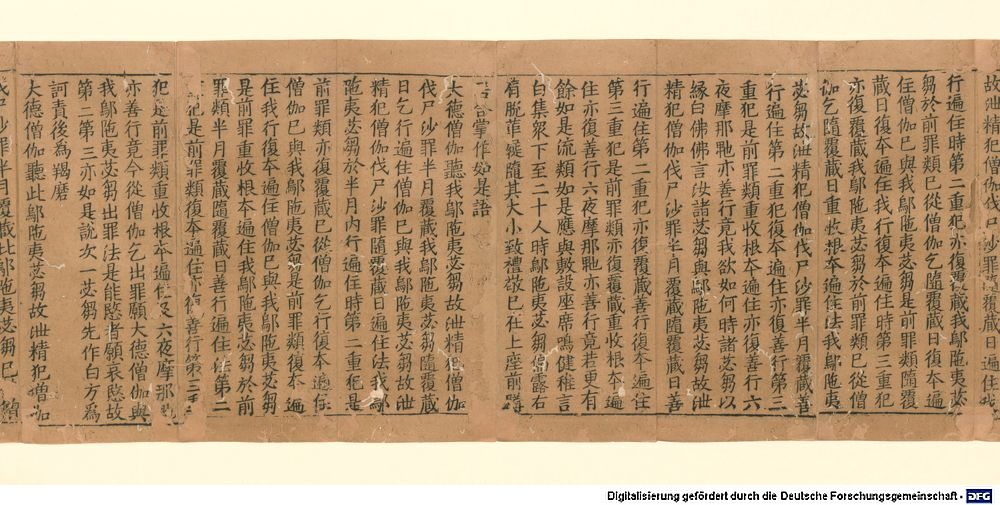 故泄精犯僧伽伐尸沙罪隨覆藏日遍住我
行遍住時第二重犯亦復覆藏我鄔陁夷苾
芻於前罪類已從僧伽乞隨覆藏日復本遍
住僧伽已與我鄔陁夷苾芻是前罪類隨覆
藏日復本遍住我行復本遍住時第三重犯
亦復覆藏我鄔陁夷苾芻於前罪類已從僧
伽乞隨覆藏日重收根本遍住法我鄔陁夷
苾芻故泄精犯僧伽伐尸沙罪半月覆藏善
行遍住第二重犯復本遍住亦復善行第三
重犯是前罪類重收根本遍住亦復善行六
夜摩那卑亦善行竟我欲如何時諸苾芻以
緣白佛佛言汝諸苾芻與鄔陁夷苾芻故泄
精犯僧伽伐尸沙罪半月覆藏隨覆藏日善
行遍住第二重犯亦復覆藏善行復本遍住
第三重犯是前罪類亦復覆藏重收根本遍
住亦復善行六夜摩那卑亦善行竟若更有
餘如是流類如是應與敷設座席鳴健稚言
白集衆下至二十人時鄔陁夷苾芻偏露右
肩脫革屣隨其大小致禮敬已在上座前蹲
踞合掌作如是語
大德僧伽聽我鄔陁夷苾芻故泄精犯僧伽
伐尸沙罪半月覆藏我鄔陁夷苾芻隨覆藏
日乞行遍住僧伽已與我鄔陁夷苾芻故泄
精犯僧伽伐尸沙罪隨覆藏日遍住法我鄔
陁夷苾芻於半月內行遍住時第二重犯是
前罪類亦復覆藏已從僧伽乞行復本遍住
僧伽已與我鄔陁夷苾芻是前罪類復本遍
住我行復本遍住僧伽已與我鄔陁夷苾芻
是前罪類重收根本遍住我鄔陁夷苾芻於前
罪類半月覆藏隨覆藏日善行遍住法第二
重犯是前罪類復本遍住亦復善行第三重
犯是前罪類重收根本遍住及六夜摩那卑
亦善行竟今從僧伽乞出罪願大德僧伽與
我鄔陁夷苾芻出罪法是能愍者願哀愍故
第二第三亦如是說次一苾芻先作白方爲
訶責後爲羯磨
大德僧伽聽此鄔陁夷苾芻故泄精犯僧伽
伐尸沙罪半月覆藏此鄔陁夷苾芻已
Digitalisierung gefördert durch die Deutsche Forschungsgemeinschaft - DFG